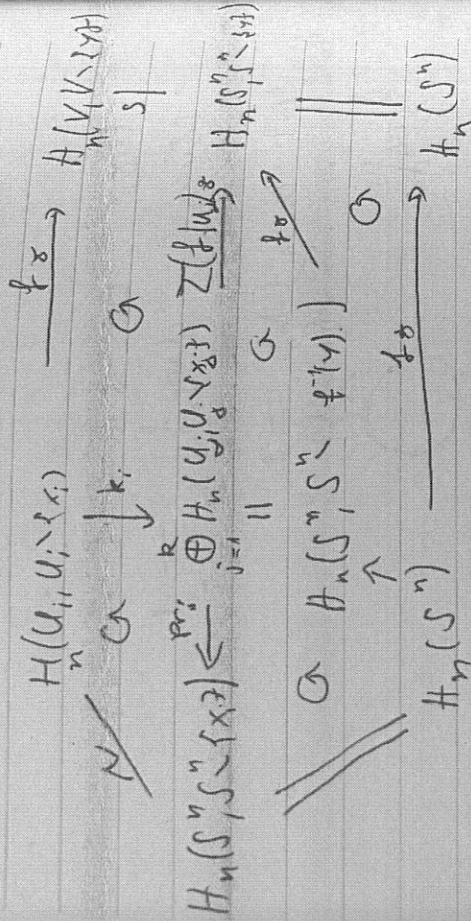 H_n(U_i, U_i \ {x_i}) f_* H_n(V, V \ {y})
k_i
H_n(S^n, S^n \ {x_i}) pr_i ⊕_{j=1}^k H_n(U_j, U_j \ {x_j}) Σ(f|U_j)_* H_n(S^n, S^n \ {y})
f_*
H_n(S^n, S^n \ f^{-1}(y))
H_n(S^n) f_* H_n(S^n)